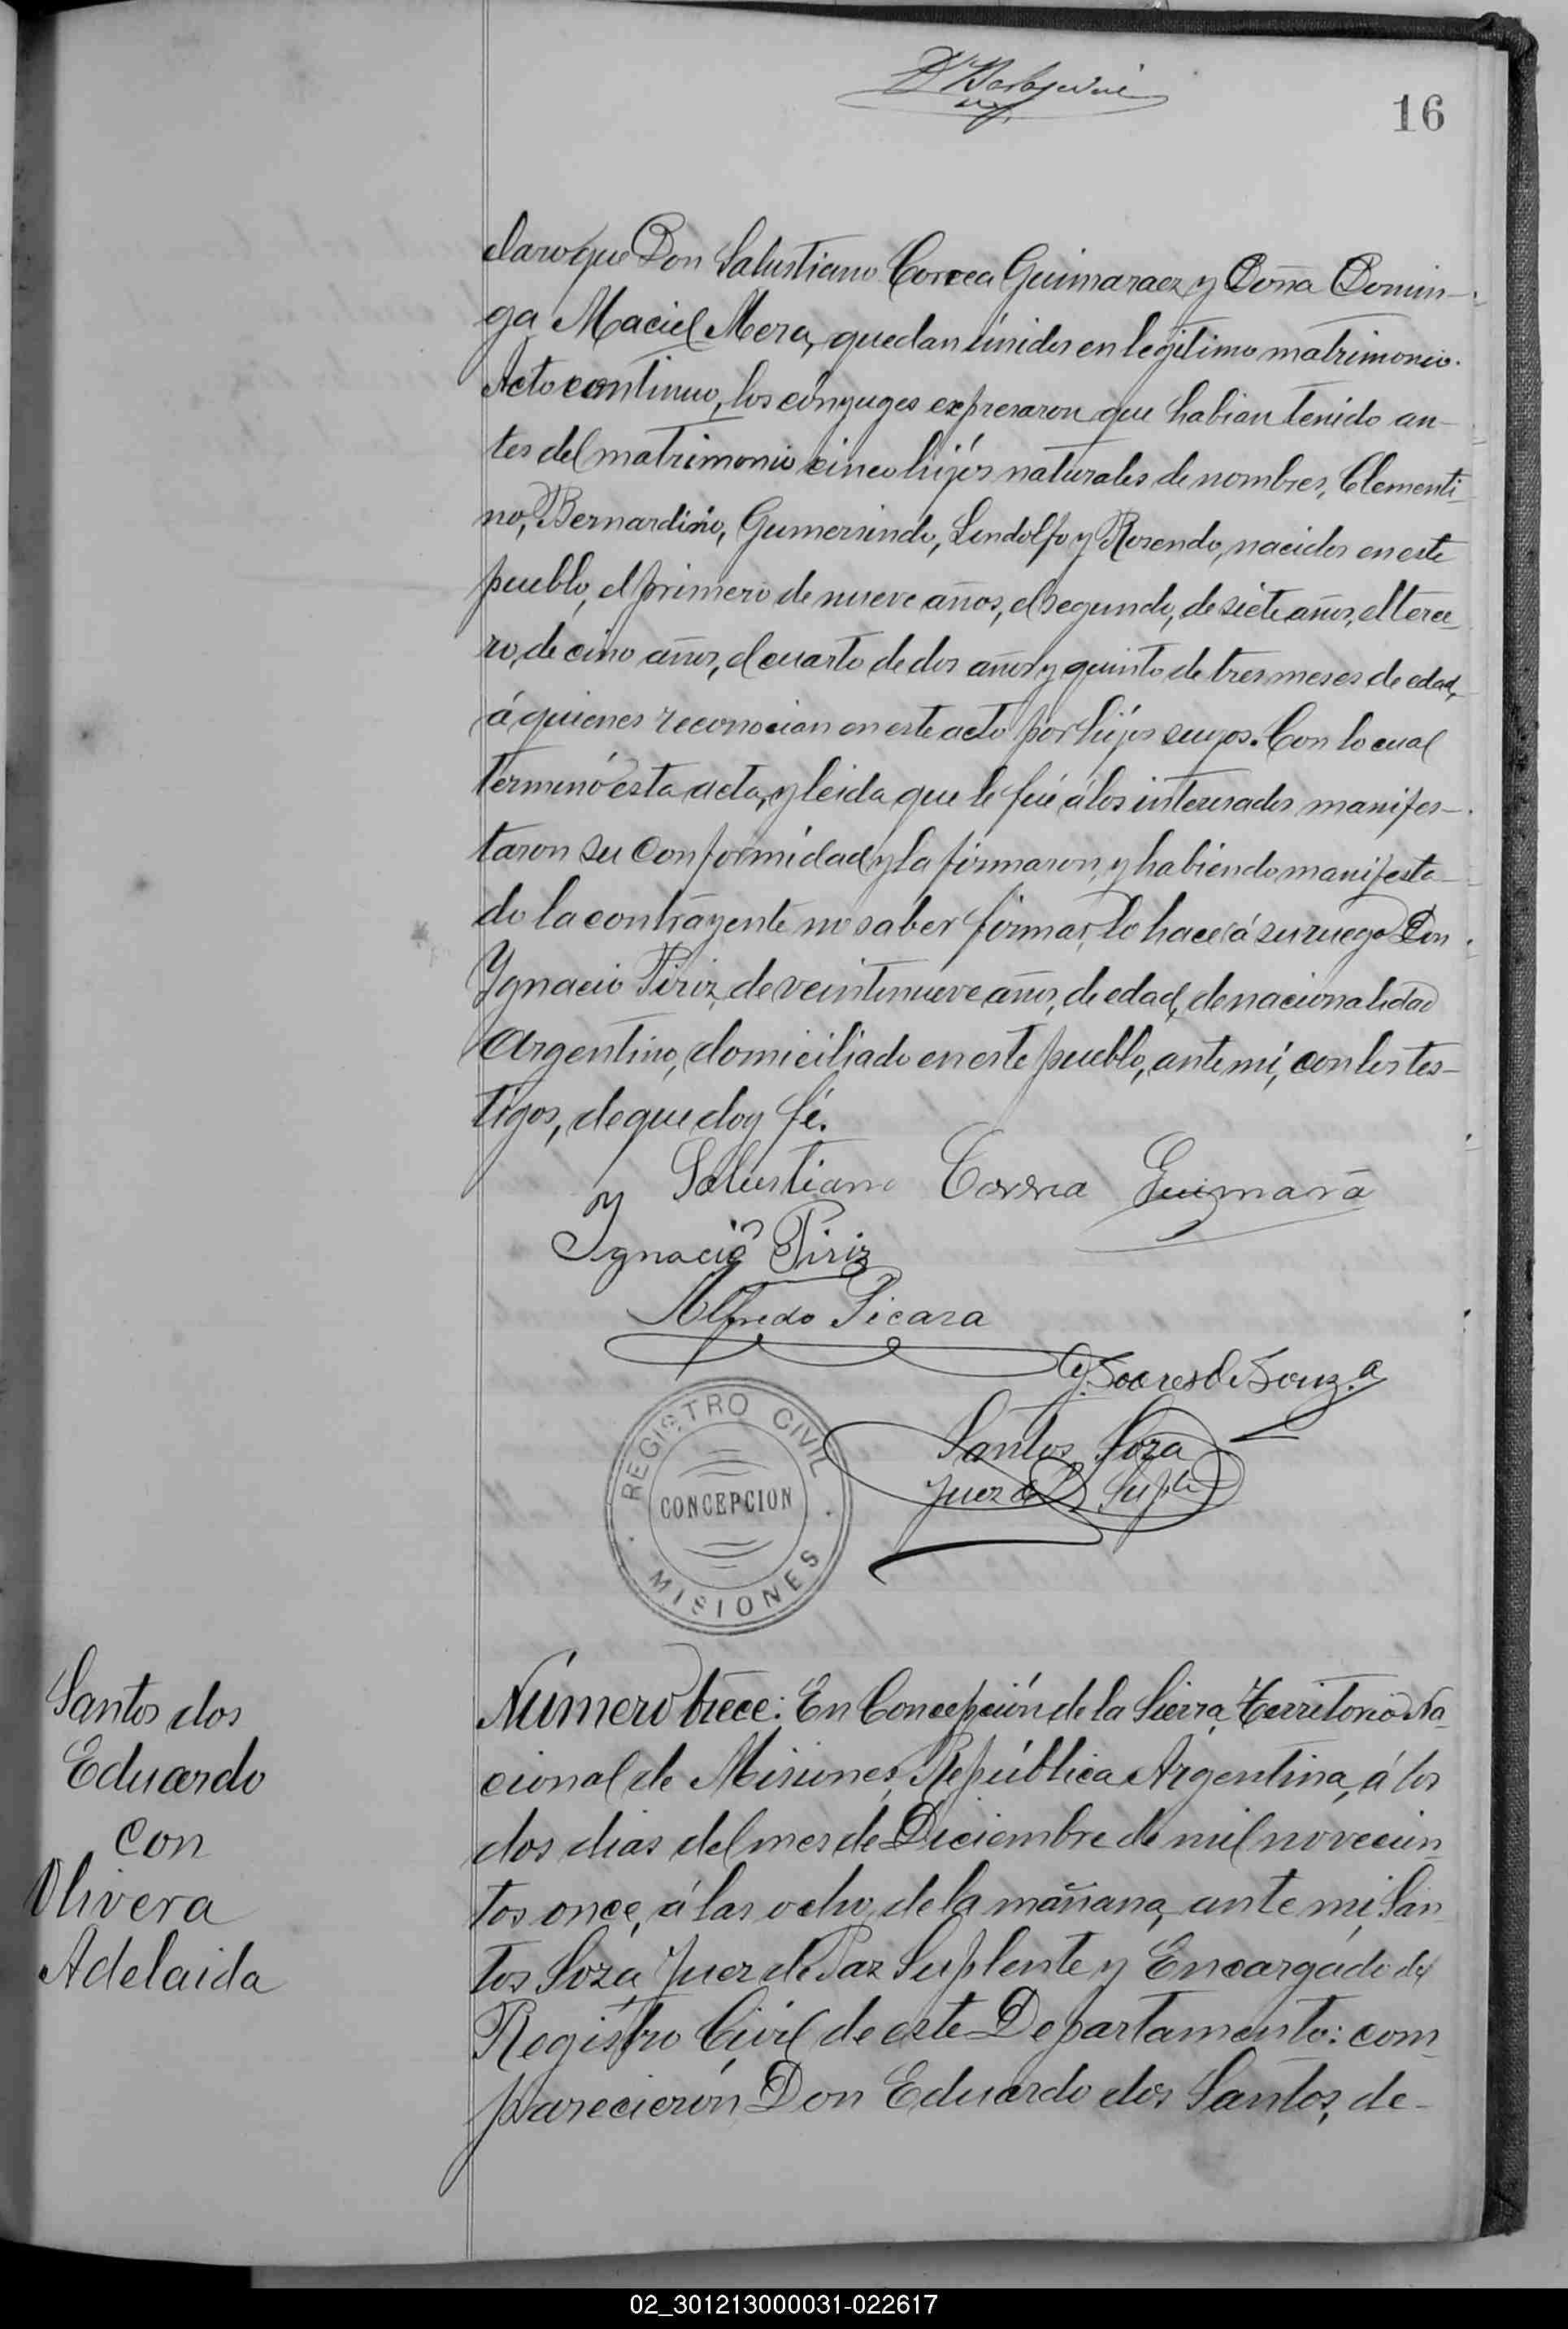 16
claro que Don Salustiano Correa Guimaraez y Doña Domin-
ga Maciel Mera, quedan únidos en legítimo matrimonio.
Acto continuo, los cónyuges expresaron que habian tenido an-
tes del matrimonio cinco hijos naturales de nombres, Clementi
no, Bernardino, Gumersindo, Lindolfo y Rosendo, nacidos en este
pueblo, el primero de nueve años, el segundo, de siete años, el terce-
ro, de cinco años, el cuarto de dos años y quinto de tres meses de edad,
á quienes reconocian en este acto por hijos suyos. Con lo cual
terminó esta acta, y leida que le fué á los interesados manifes-
taron su conformidad y la firmaron, y habiendo manifesta-
do la contrayente no saber firmar, lo hace á su ruego Don
Ygnacio Piriz, de veintinueve años, de edad, de nacionalidad
Argentino, domiciliado en este pueblo, ante mí, con los tes-
tigos, de que doy fé.
Salustiano Correa Guimarã
Ygnacio Piriz
Alfredo Picaza
Y. Soares de Souza
Santos Soza
Juez de P. Suplte
REGISTRO CIVIL
CONCEPCION
MISIONES
Santos dos
Eduardo
con
Olivera
Adelaida
Número trece: En Concepción de la Sierra, Territorio Na-
cional de Misiones, República Argentina, á los
dos dias del mes de Diciembre de mil novecien-
tos once, á las ocho de la mañana, ante mi, San
tos Soza, Juez de Paz Suplente y Encargado del
Registro Civil de este Departamento: com-
parecieron Don Eduardo dos Santos, de-
02_301213000031-022617